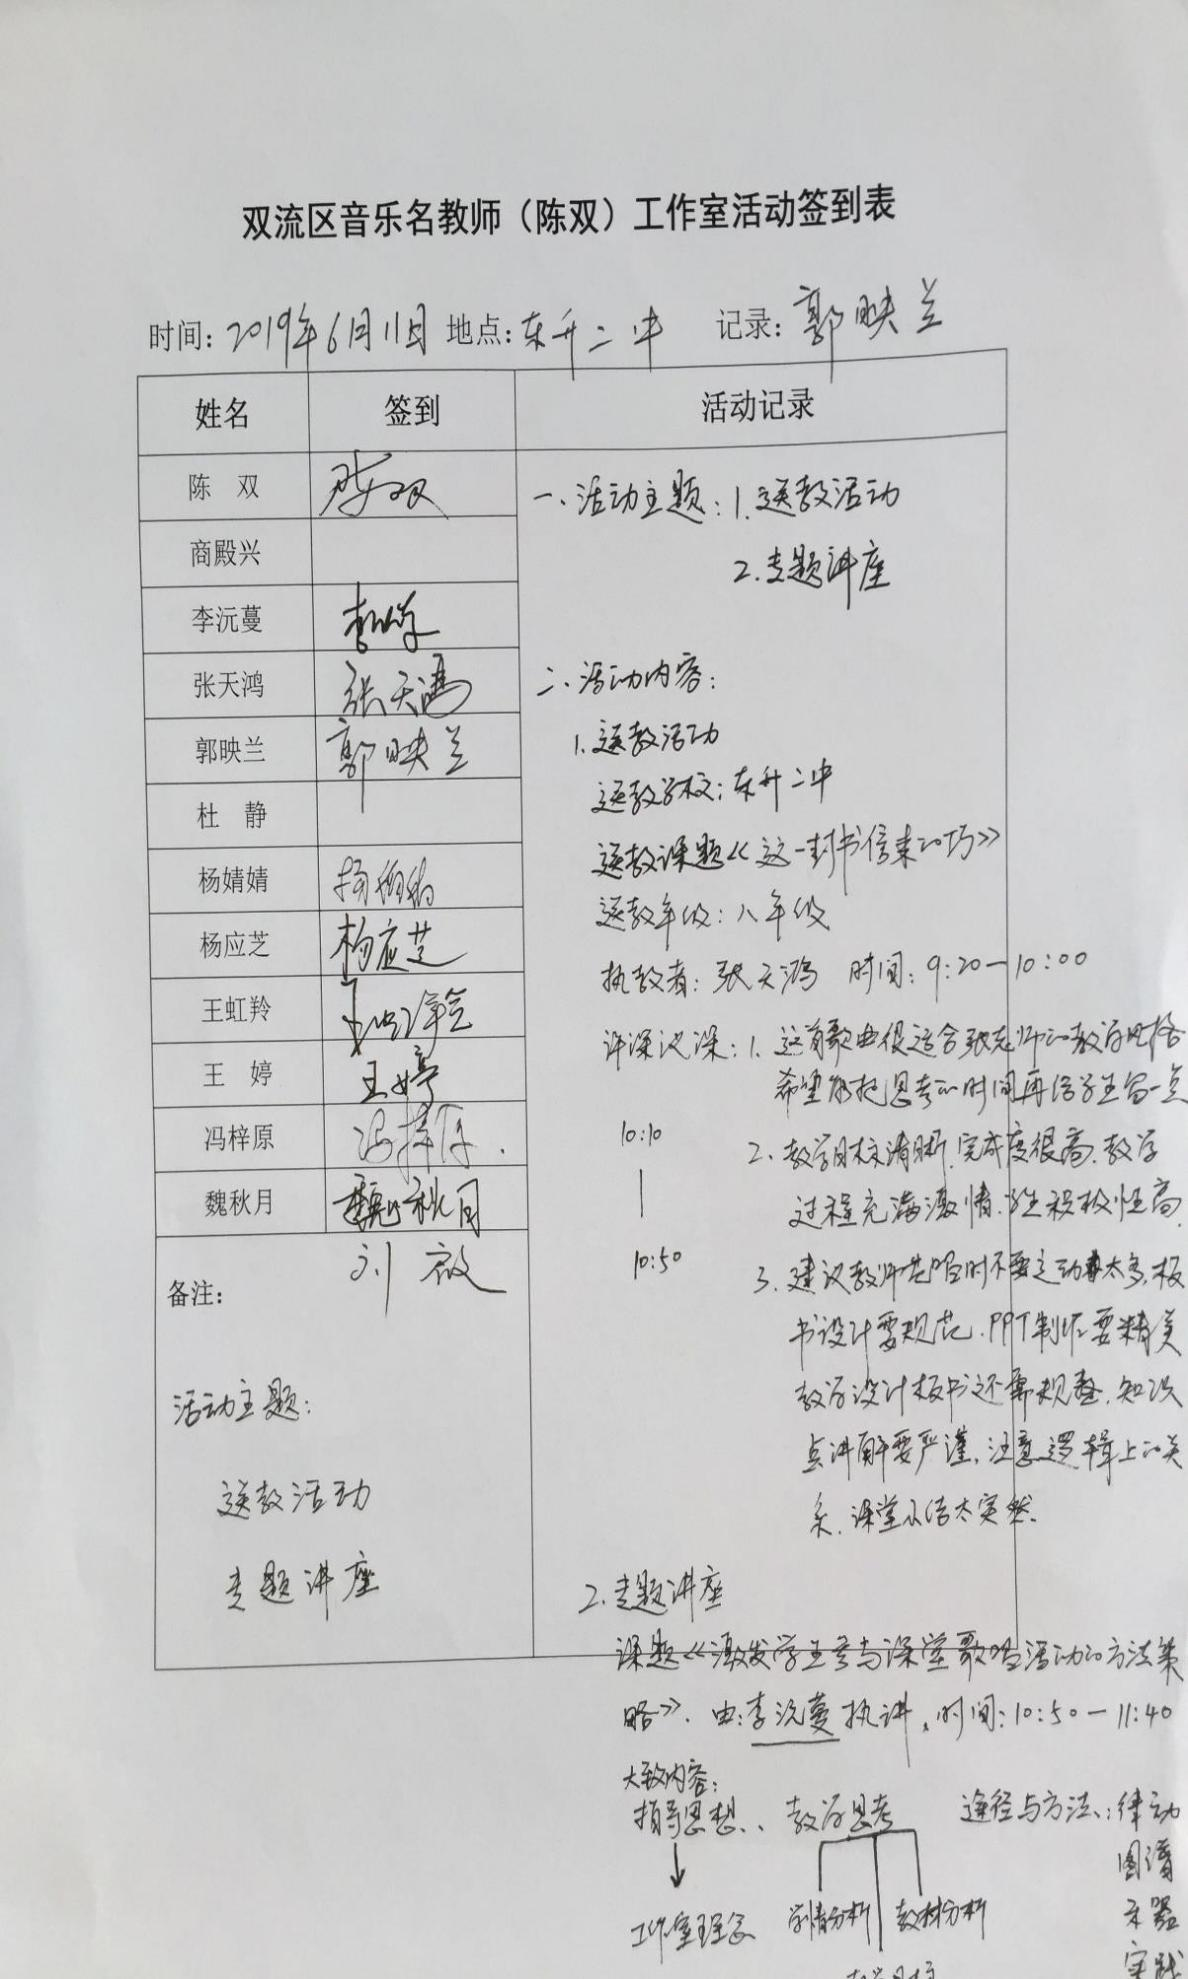 双流区音乐名教师（陈双）工作室活动签到表
时间：2019年6月11日 地点：东升二中 记录：郭映兰
姓名 签到 活动记录
陈 双 陈双
商殿兴
李沅蔓
张天鸿 张天鸿
郭映兰 郭映兰
杜 静
杨婧婧 杨婧婧
杨应芝 杨应芝
王虹羚 王虹羚
王 婷 王婷
冯梓原 冯梓原
魏秋月 魏秋月
刘薇
备注：
活动主题：
送教活动
专题讲座
一、活动主题：1.送教活动
2.专题讲座
二、活动内容：
1.送教活动
送教学校：东升二中
送教课题《这一封书信来的巧》
送教年级：八年级
执教者：张天鸿 时间：9:20—10:00
评课议课：1.这首歌曲很适合张老师的教学风格
希望能把思考的时间再给学生留一点
10:10
10:50
2.教学目标清晰，完成度很高，教学
过程充满激情，学生积极性高
3.建议教师范唱时不要走动太多，板
书设计要规范，PPT制作要精美
教学设计板书还需规整，知识
点讲解要严谨，注意逻辑上的关
系，课堂小结太突然.
2.专题讲座
课题《激发学生参与课堂歌唱活动的方法策
略》. 由：李沅蔓执讲，时间：10:50—11:40
大致内容：
指导思想、教学思考 途径与方法：律动
图谱
乐器
实践
工作室理念 学情分析 教材分析
教学目标